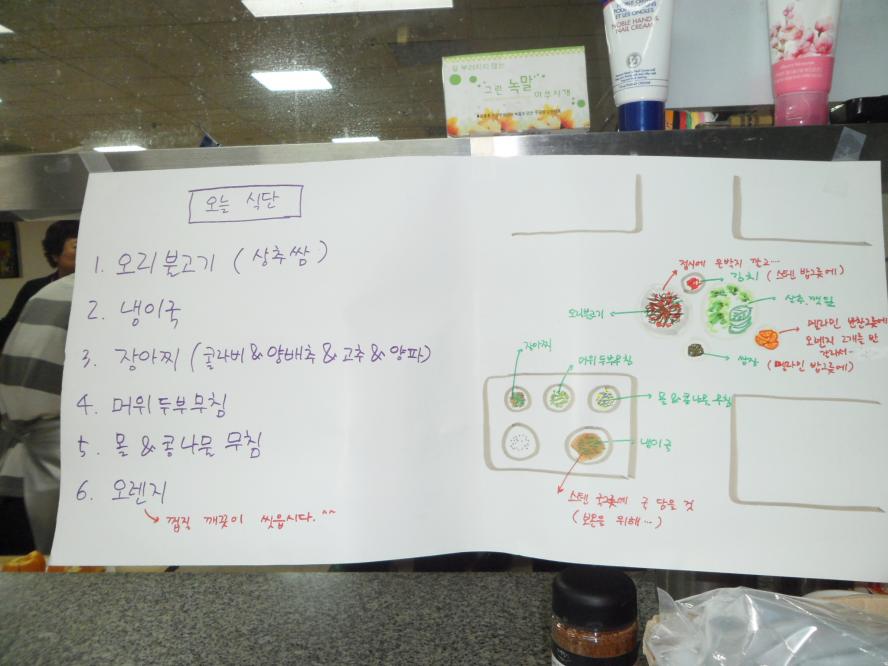 TOUTES LES MAINS
ET LES ONGLES
NOBLE HAND &
NAIL CREAM
잘 부러지지 않는
그린 녹말 이쑤시개
오늘 식단
1. 오리불고기 (상추쌈)
2. 냉이국
3. 장아찌 (콜라비&양배추&고추&양파)
4. 머위두부무침
5. 몰&콩나물 무침
6. 오렌지
껍질 깨끗이 씻읍시다.^^
접시에 은박지 깔고...
김치 (스텐 밥그릇에)
오리불고기
상추, 깻잎
멜라민 반찬그릇에
오렌지 2개를 반
갈라서~
쌈장
(멜라민 밥그릇에)
장아찌
머위두부무침
몰&콩나물무침
냉이국
스텐 국그릇에 국 담을 것
(보온을 위해...)